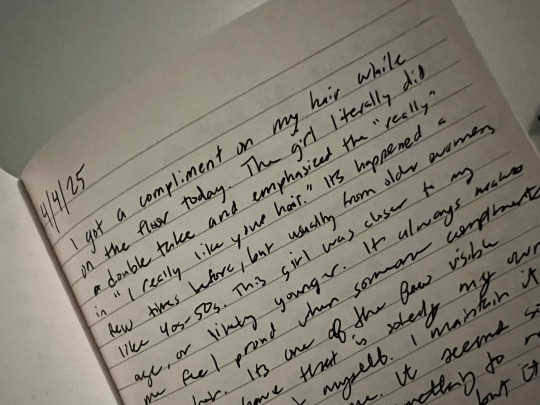 4/4/25
I got a compliment on my hair while
on the floor today. The girl literally did
a double take and emphasized the "really"
in "I really like your hair." It's happened a
few times before, but usually from older women,
like 40s-50s. This girl was closer to my
age, or likely younger. It always makes
me feel proud when someone compliments
hair. Its one of the few visible
have that is solely my own
myself. I maintain it
me. It seemed
to
but it